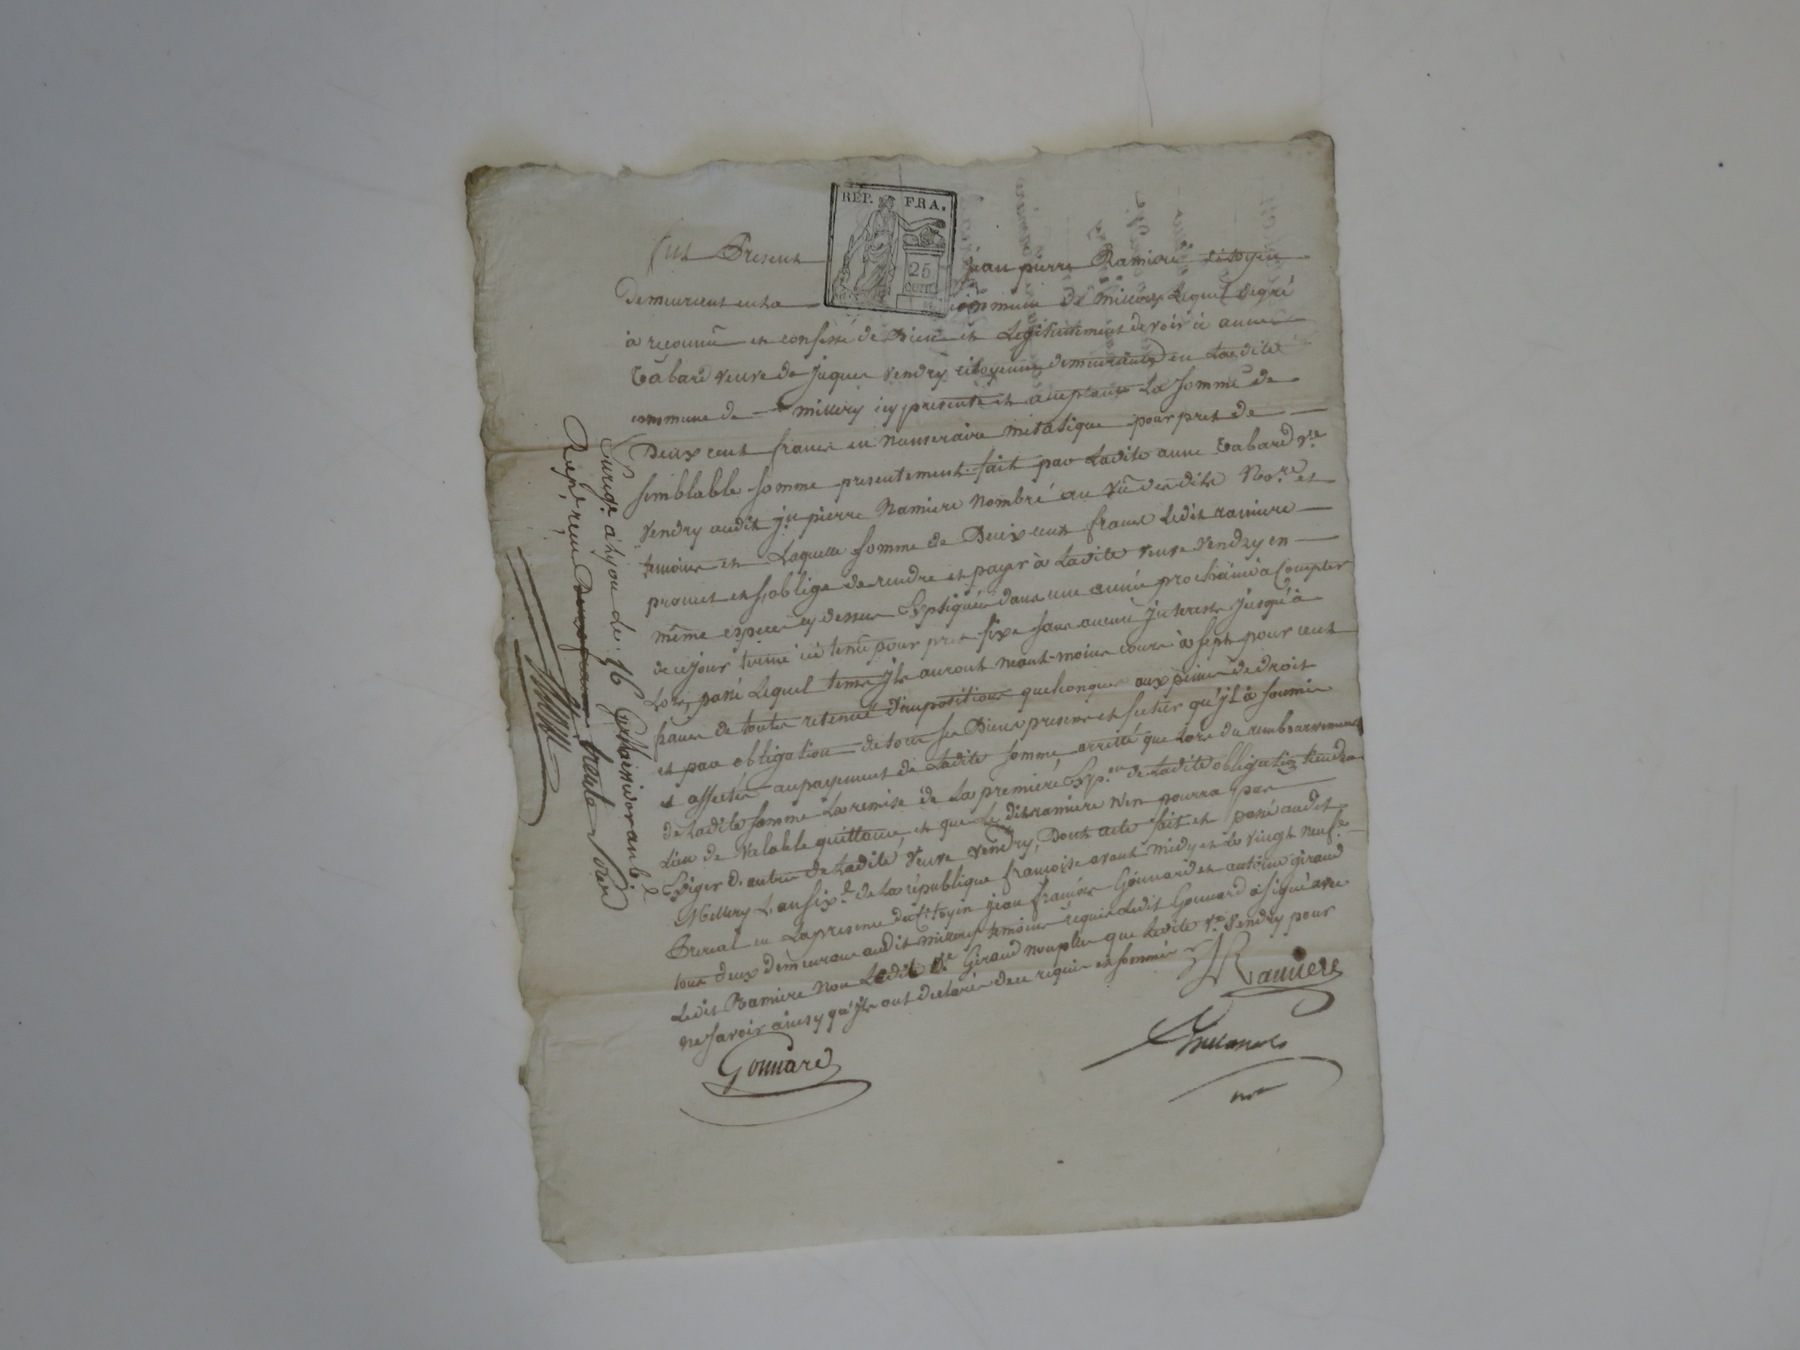 REP. FRA.
25
CENT.
fut Present jean pierre Ramiere citoyen
demeurant en la commune de millery Lequel degré
à reconnu et confessé de Bien et Legitimement devoir à anne
Tabard veuve de jaques vendry citoyenne demeurante en Ladite
commune de millery icy presente et acceptante La somme de
Deux cent francs en Numeraire metalique pour pret de
semblable somme presentement fait par Ladite anne Tabard Ve
vendry audit jn pierre Ramiere Nombré au vû desdits Nore et
temoins et Laquelle somme de Deux cent francs Ledit ramiere
promet et s'oblige de rendre et payer à Ladite veuve vendry en
même especes cy dessus Expliquées dans une année prochaine à Compter
de ce jour terme icÿ tenu pour prefix sans aucun jnterests jusqu'à
Lors, passé Lequel tems jls auront neant-moins cours à sept pour cent
francs de toutes retenues d'impositions quelconques aux peines de droit
et par obligation de tous ses Biens presens et futurs qu'jl à soumis
et affectés au payement de Ladite somme arretté que Lors du remboursement
de Ladite somme La remise de La premiere Expon de Ladite obligation tiendra
Lieu de valable quittance et que Le dit ramiere n'en pourra pas
Exiger d'autre de Ladite veuve vendry, Dont acte fait et passé audit
Millery L'an sixe de La république françoise avant midy et Le vingt neuf
en La presence du Citoyen jean françois Gonnard et antoine giraud
tous deux demeurans audit millery temoins requis Ledit Gonnard à signé avec
Ledit Ramiere Non Ledit Giraud non plus que Ladite Ve vendry pour
ne savoir ainsy qu'jls ont declarés de ce requis et sommés
Ramiere
Gonnard
nre
Enregé à Lyon le 16 an 6e
Repe, reçu Deux francs trente